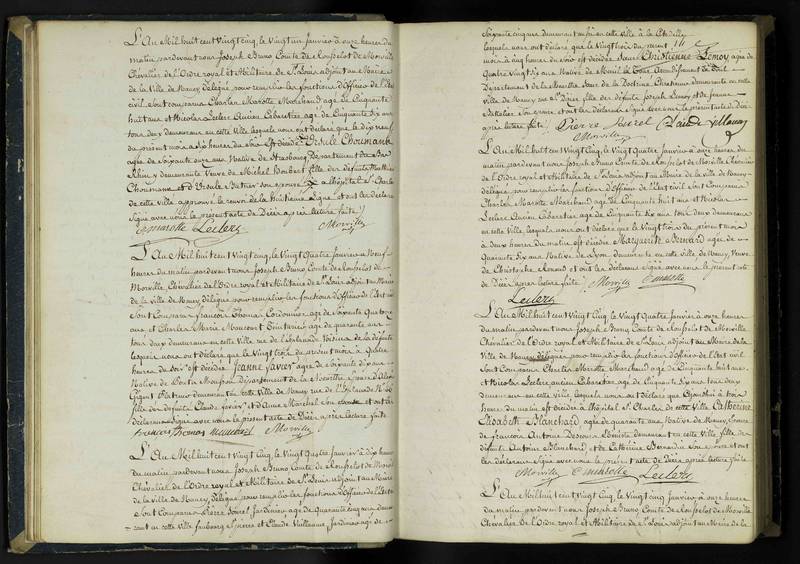 L'An Mil huit cent Vingt cinq, le Vingt un janvier à onze heures du
matin pardevant nous Joseph Bruno Comte de Rousselot de Morville
Chevalier de l'Ordre royal et Militaire de St Louis adjoint au Maire
de la Ville de Nancy délégué pour remplir les fonctions d'Officier de l'Etat
civil, sont comparus Charles Marotte Marchand agé de Cinquante
huit ans et Nicolas Leclerc Ancien Cabaretier agé de Cinquante six ans
tous deux demeurant en cette Ville lesquels nous ont déclaré que le dix neuf
du présent mois à dix heures du soir est décédée Ursule Choumanck
agée de soixante onze ans Native de Strasbourg Département du Bas
Rhin, y demeurante Veuve de Michel fille des défunts Mathieu
et d'Ursule son épouse à l'hôpital St Charles
de cette ville approuvé le renvoi de la huitieme ligne et ont les déclarans
signé avec nous le présent acte de Décès après lecture faite
Cmarotte Leclerc Morville
L'An Mil huit cent Vingt cinq, le Vingt Quatre janvier à Neuf
heures du matin pardevant nous Joseph Bruno Comte de Rousselot de
Morville, Chevalier de l'Ordre royal et Militaire de St Louis adjoint au Maire
de la ville de Nancy délégué pour remplir les fonctions d'Officier de l'Etat civil
sont Comparus françois Thomas Cordonnier agé de soixante Quatorze
ans et Charles Marie agé de quarante
tous deux demeurant en cette Ville rue de l'Esplanade Voisins de la défunte
lesquels nous ont déclaré que le Vingt trois du présent mois à Quatre
heures du soir est décédée Jeanne Xavier agée de soixante dix ans
Native de Pont à Mousson département de la Meurthe
demeurant en cette Ville rue de l'Esplanade
fille des défunts Claude Xavier et d'Anne Marchal son épouse et ont les
déclarans signé avec nous le présent acte de Décès après lecture faite
francois thomas Morville
L'An Mil huit cent Vingt Cinq, le Vingt Quatre janvier à dix heures
du matin pardevant nous Joseph Bruno Comte de Rousselot de Morville
Chevalier de l'Ordre royal et Militaire de St Louis adjoint au Maire
de la Ville de Nancy, délégué pour remplir les fonctions d'Officier de l'Etat civil
sont Comparus Pierre Jardinier agé de Quarante cinq ans demeurant
en cette Ville faubourg St Pierre et Claude Villaume, Jardinier agé de
soixante cinq ans demeurant aussi en cette ville à la Citadelle
lesquels nous ont déclaré que le Vingt trois du présent
mois à cinq heures du soir est décédée Christienne Lemoy agée de
Quatre Vingt six ans Native de Mesnil la Tour Arrondissement de Toul
Département de la Meurthe Soeur de la Doctrine Chrétienne demeurante en cette
ville de Nancy fille des défunts Joseph Lemoy et de Jeanne
Battelier son épouse et ont les déclarans signé avec nous le présent acte de Décès
après lecture faite Pierre Claude Villaume
Morville
L'An Mil huit cent Vingt Cinq, le Vingt Quatre janvier à onze heures du
matin pardevant nous Joseph Bruno Comte de Rousselot de Morville Chevalier
de l'Ordre royal et Militaire de St Louis adjoint au Maire de la ville de Nancy
délégué pour remplir les fonctions d'Officier de l'Etat civil sont Comparus
Charles Marotte Marchand agé de Cinquante huit ans et Nicolas
Leclerc Ancien Cabaretier agé de Cinquante six ans tous deux demeurant
en cette Ville, lesquels nous ont déclaré que le Vingt trois du présent mois
à deux heures du matin est décédée Marguerite Bernard agée de
Quarante dix ans Native de Lyon demeurante en cette ville, de Nancy Veuve
de Christophe et ont les déclarans signé avec nous le présent acte
de Décès après lecture faite Morville Cmarotte
Leclerc
L'An Mil huit cent Vingt Cinq, le Vingt Quatre janvier à onze heures
du matin pardevant nous Joseph Bruno Comte de Rousselot de Morville
Chevalier de l'Ordre royal et Militaire de St Louis adjoint au Maire de la
Ville de Nancy délégué pour remplir les fonctions d'Officier de l'Etat civil
sont Comparus Charles Marotte Marchand agé de Cinquante huit ans
et Nicolas Leclerc ancien Cabaretier agé de Cinquante six ans tous deux
demeurant en cette ville, lesquels nous ont déclaré que Aujourd'hui à trois
heures du matin est décédée à l'hôpital St Charles de cette Ville Catherine
Elisabeth Blanchard agée de quarante ans Native de Nancy, épouse
de françois Antoine demeurant en cette Ville fille des
défunts Antoine Blanchard et de Catherine Bernardin son épouse et ont
les déclarans signé avec nous le présent acte de Décès après lecture faite
Morville Cmarotte Leclerc
L'An Mil huit cent Vingt cinq, le Vingt Cinq janvier à onze heures
du matin, pardevant nous Joseph Bruno Comte de Rousselot de Morville
Chevalier de l'Ordre royal et Militaire de St Louis adjoint au Maire de la